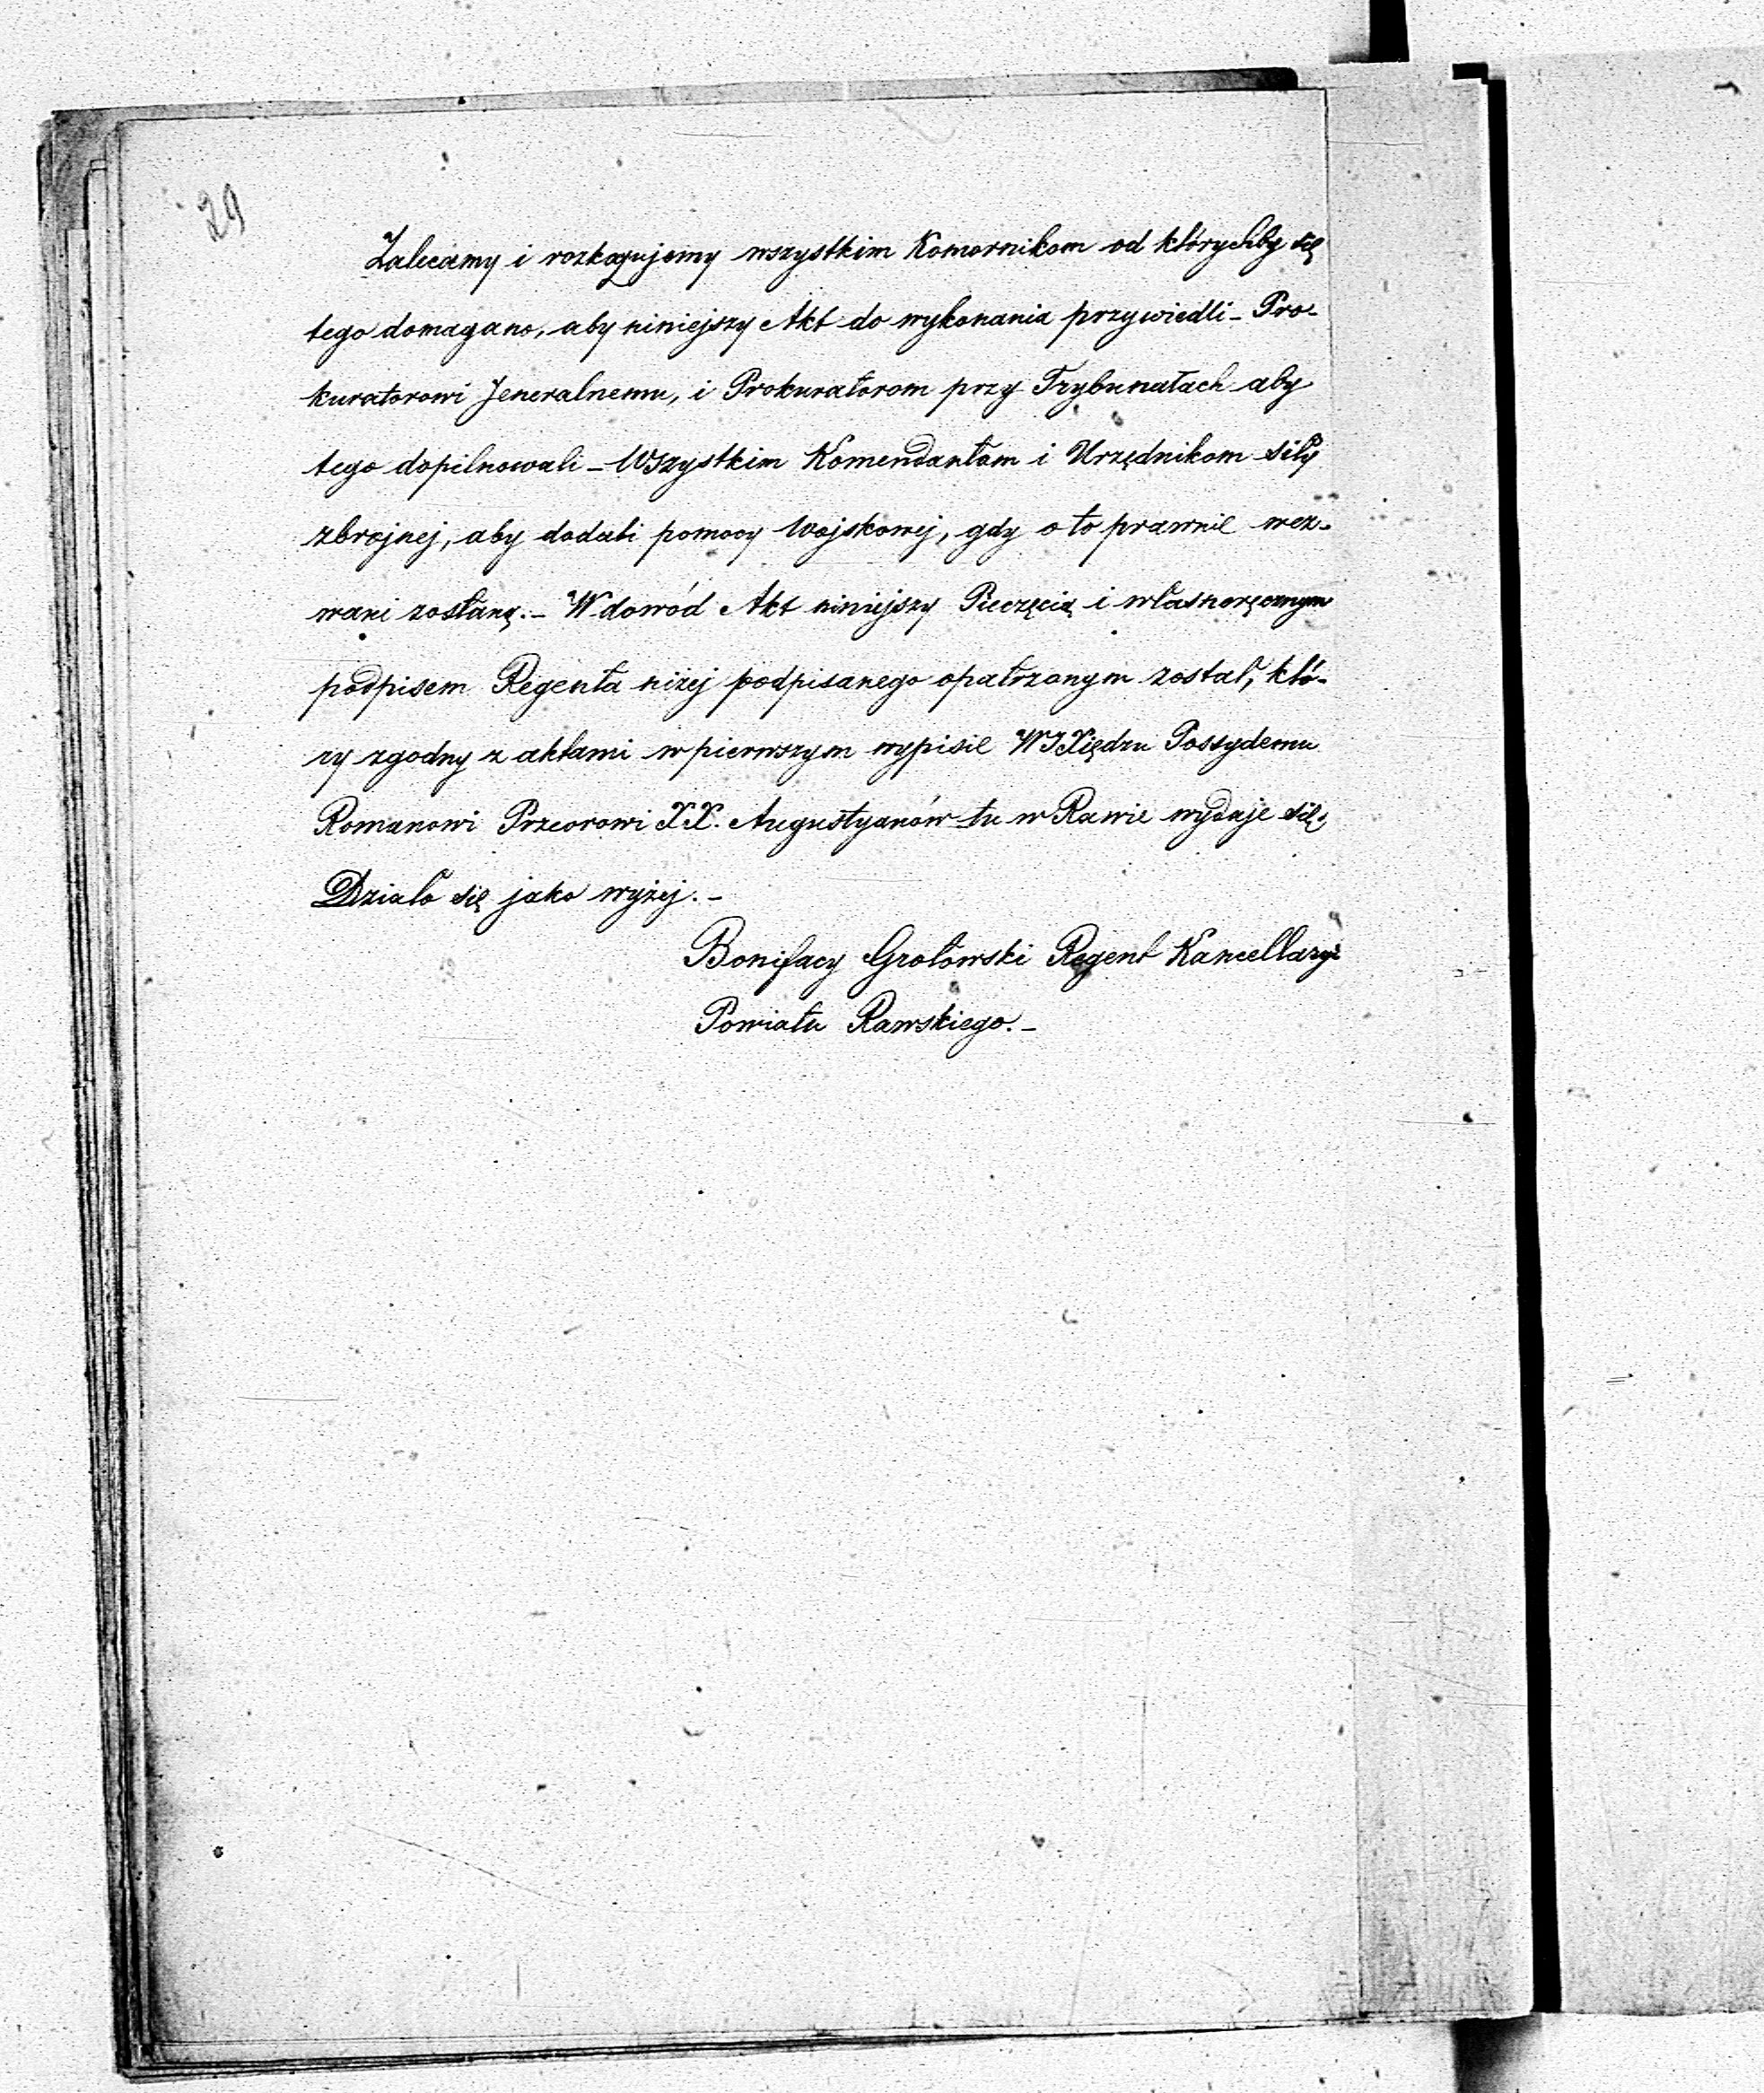 29
Zalecamy i rozkazujemy wszystkim Komornikom od którychby się
tego domagano, aby niniejszy Akt do wykonania przywiedli – Pro-
kuratorowi Jeneralnemu, i Prokuratorom przy Trybunałach aby
tego dopilnowali – Wszystkim Komendantom i Urzędnikom siły
zbrojnej, aby dodali pomocy Wojskowej, gdy o to prawnie wez-
wani zostaną. – W dowód Akt niniejszy Pieczęcią i własnoręcznym
podpisem Regenta niżej podpisanego opatrzonym został, któ-
ry zgodny z aktami w pierwszym wypisie WJXiędzu Possydemu
Romanowi Przeorowi XX. Augustyanów tu w Rawie wydaje się.
Działo się jako wyżej. –
Bonifacy Grotowski Regent Kancellaryi
Powiatu Rawskiego. –